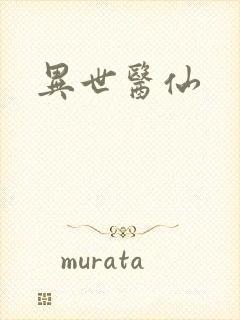 異世醫仙
murata